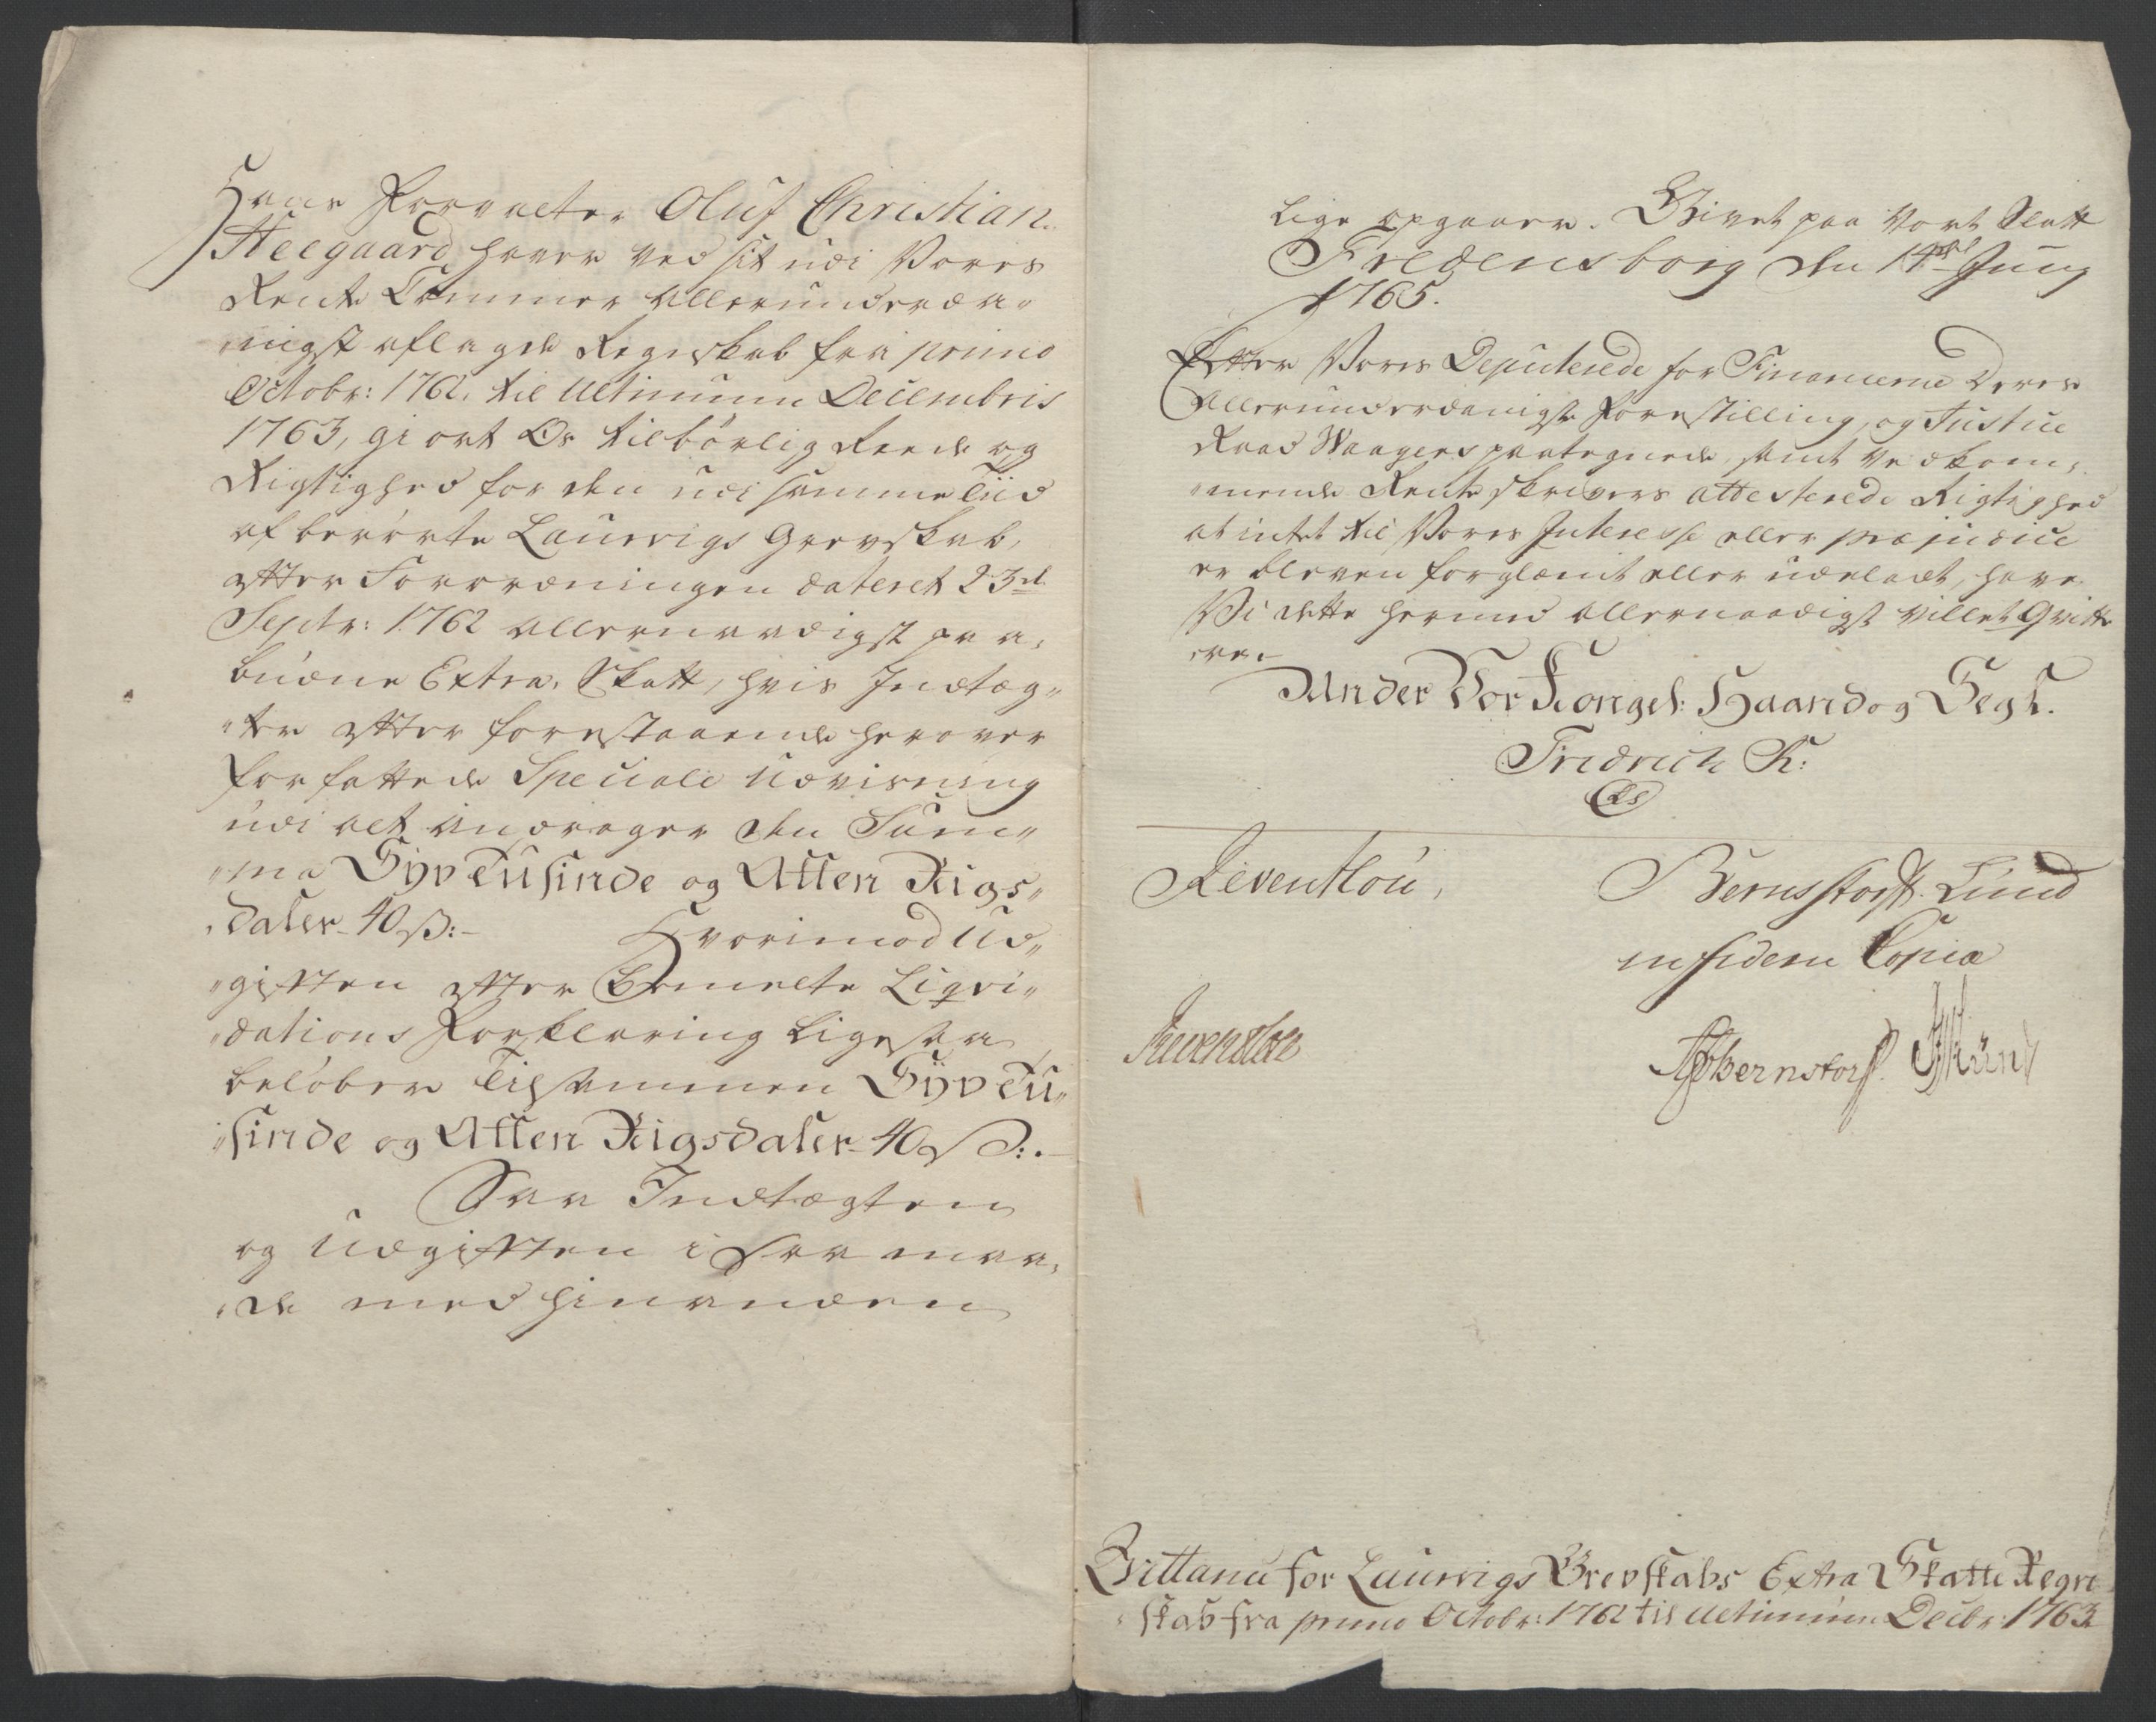 Hans Forvalter Oluf Christian
Heegaard haver ved sit udi Vores
Rente Cammer allerunderdan„
„nigst aflagde Regnskab fra primo
Octobr: 1762. til Ultimum Decembris
1763, giort Os tilbørlig Reede og
Rigtighed for den udi samme Tiid
af berørte Laurvigs Grevskab,
efter Forordningen dateret 23de
Septr: 1762 allernaadigst paa„
budne Extra Skatt, hvis Indtæg„
„ter efter forestaaende herover
forfattede Speciale Udviisning
udi alt andrager den Sum„
„ma Syv Tusinde og Atten Rigs„
„daler 40 ß:- Hvorimod Ud„
„giften efter Bemelte Liqvi„
„dations Forklaring ligesaa
beløber tilsammen Syv Tu„
„sinde og Atten Rigsdaler 40 ß:.-
Saa Indtægten
og Udgiften i saa maa„
„de med hinanden
lige opgaaer. Givet paa Vort Slott
Fredensborg den 14de Juny
1765.
Efter Vores Deputerede for Financerne Deres
Allerunderdanigste Forestilling, og Justice
Raad Waagers paategnede, samt vedkom„
„mende Renteskrivers attesterede Rigtighed
at intet til Vores Interesse eller præjudice
er bleven forglemt eller udeladt, have
Vi dette hermed allernaadigst villet Qvitte„
„re.
Under Vor Kongel: Haand og Segl.
Fridrich R:
(LS)
Reventlou,
Bernsstorff. Lund
in fidem Copiæ
Reventlou
Bernstorff.
Qvittance for Laurvigs Grevskabs Extra Skatte Regn„
„skab fra primo Octobr: 1762 til Ultimum Decbr: 1763